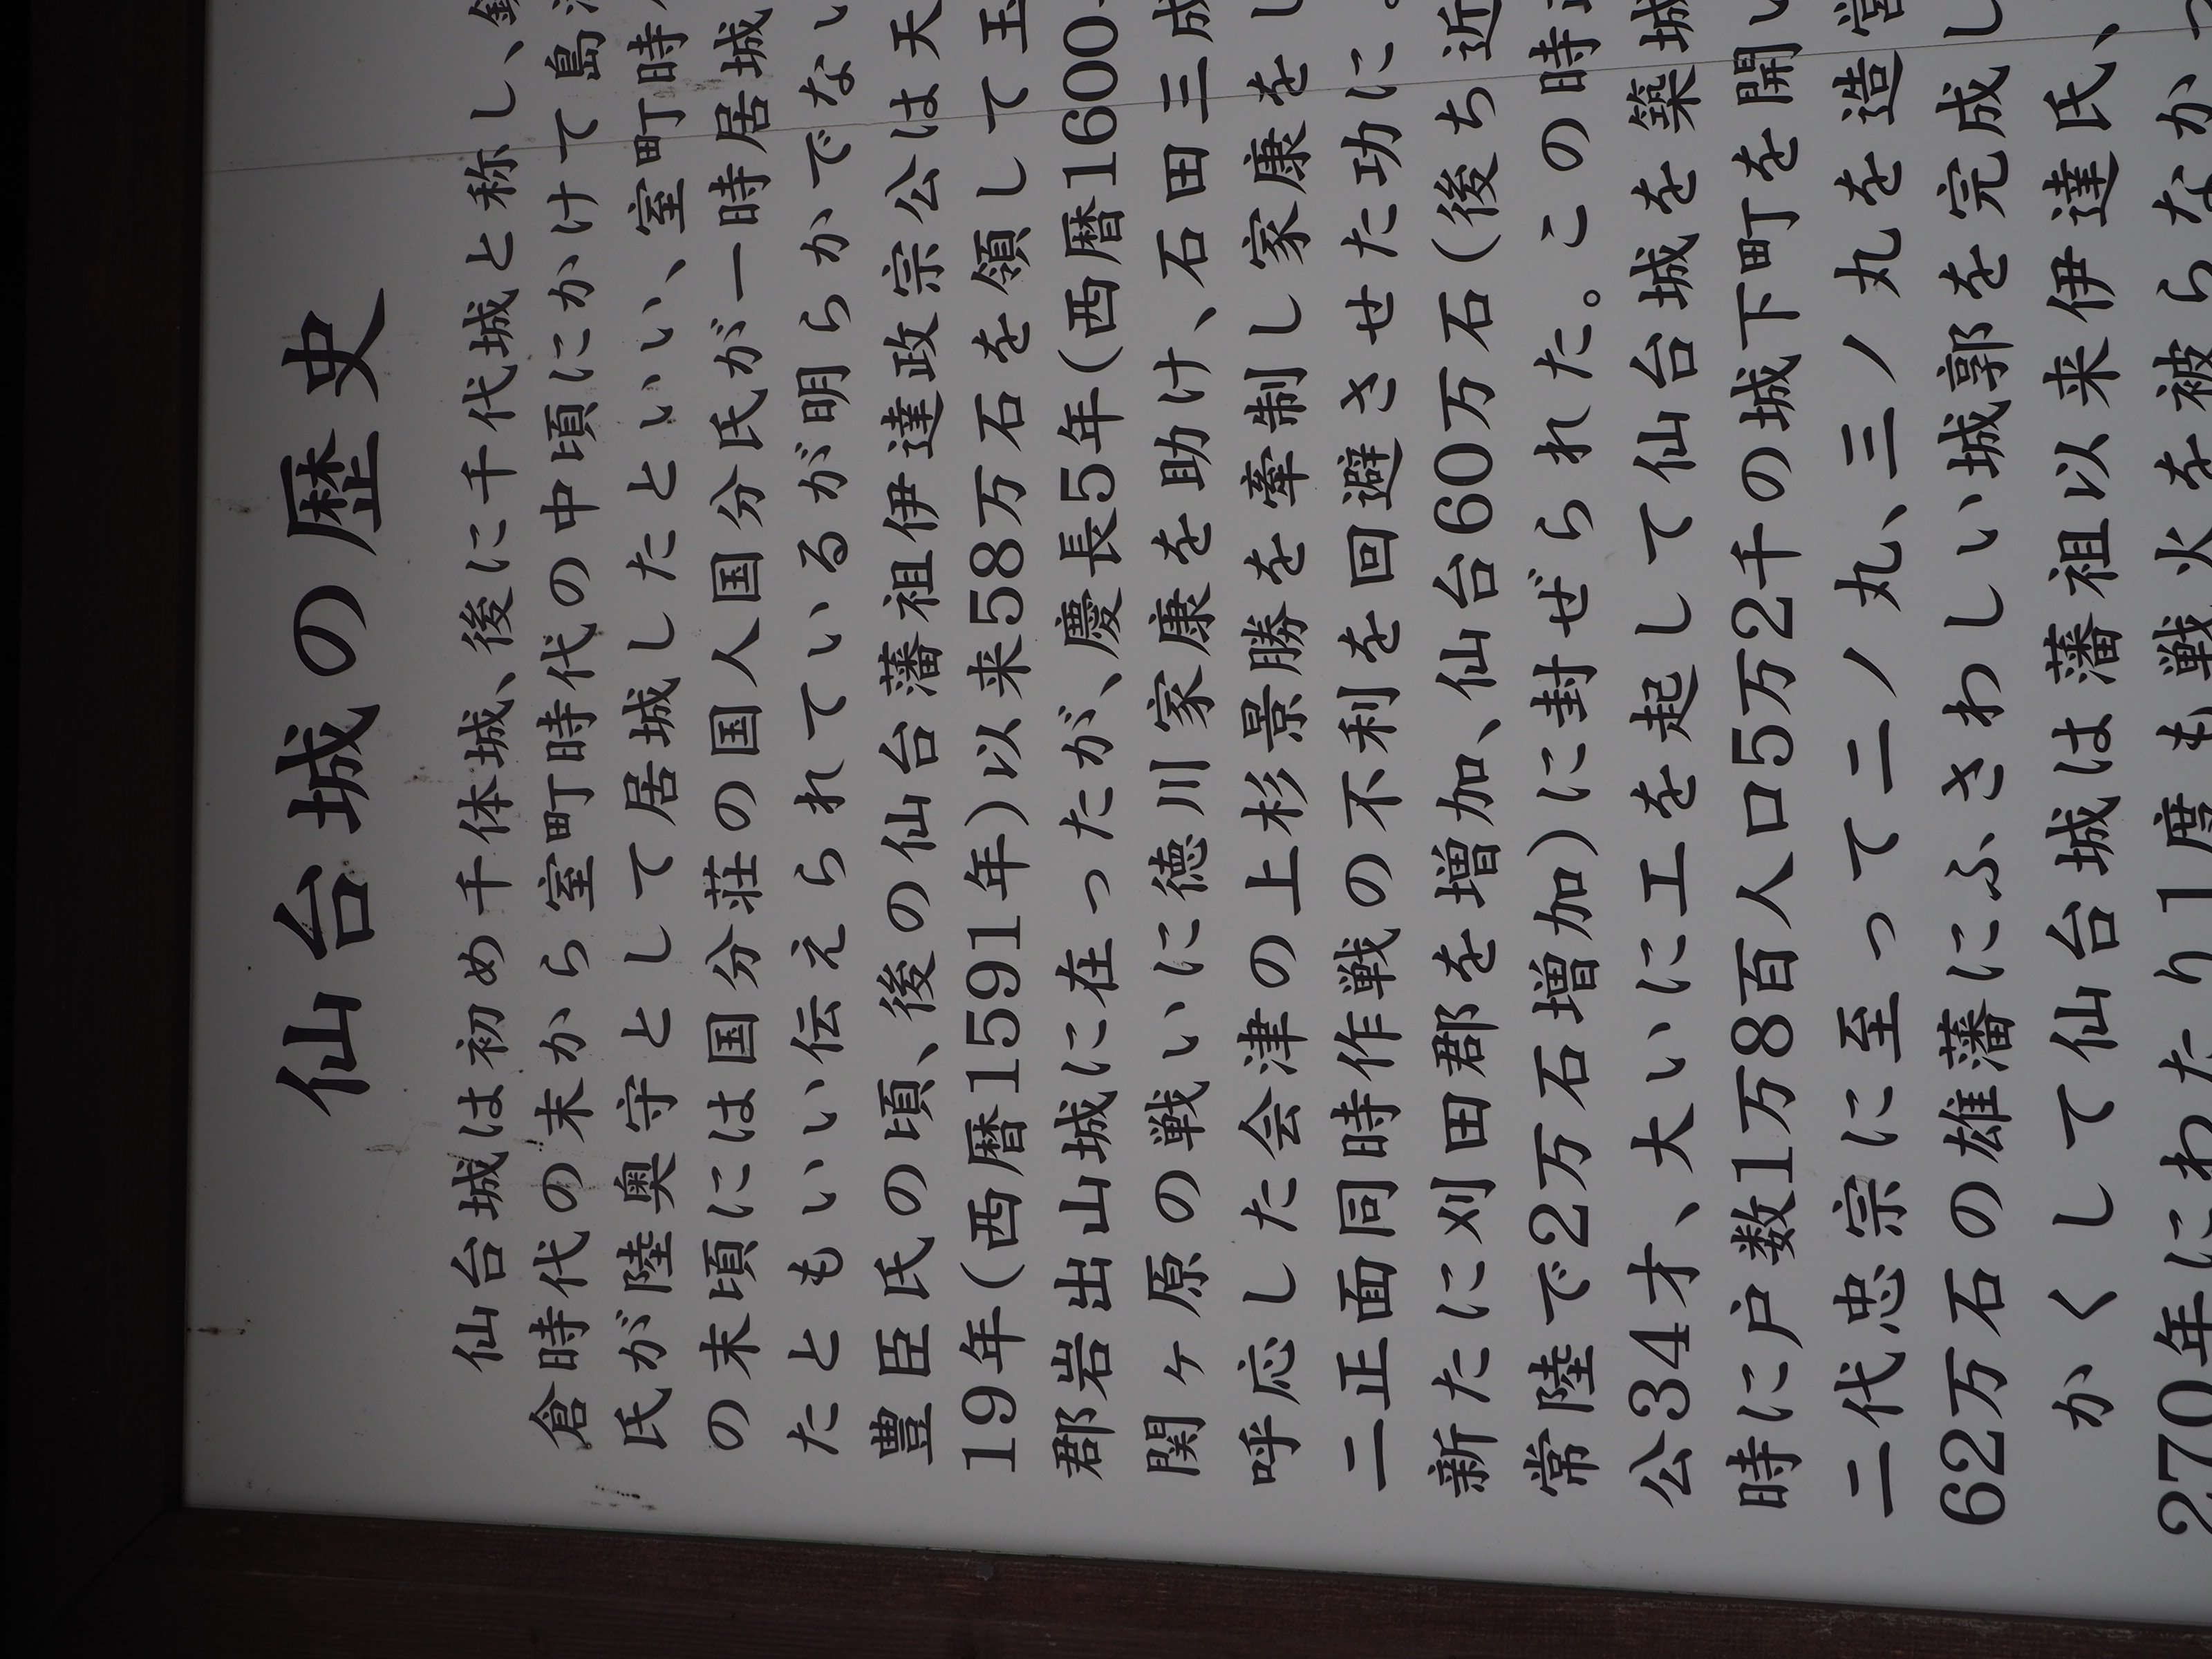 仙台城の歴史
仙台城は初め千体城、後に千代城と称し、
倉時代の末から室町時代の中頃にかけて島
氏が陸奥守として居城したといい、室町時
の末頃には国分荘の国人国分氏が一時居城
たともいい伝えられているが明らかでない
豊臣氏の頃、後の仙台藩祖伊達政宗公は天
19年(西暦1591年)以来58万石を領して玉
郡岩出山城に在ったが、慶長5年(西暦1600
関ヶ原の戦いに徳川家康を助け、石田三成
呼応した会津の上杉景勝を牽制し家康をし
二正面同時作戦の不利を回避させた功に。
新たに刈田郡を増加、仙台60万石(後ち近
常陸で2万石増加)に封ぜられた。この時
公34才、大いに工を起して仙台城を築城
時に戸数1万8百人口5万2千の城下町を開い
二代忠宗に至って二ノ丸、三ノ丸を造営
62万石の雄藩にふさわしい城郭を完成し
かくして仙台城は藩祖以来伊達氏、
270年にわたり1度も戦火を被らなかっ